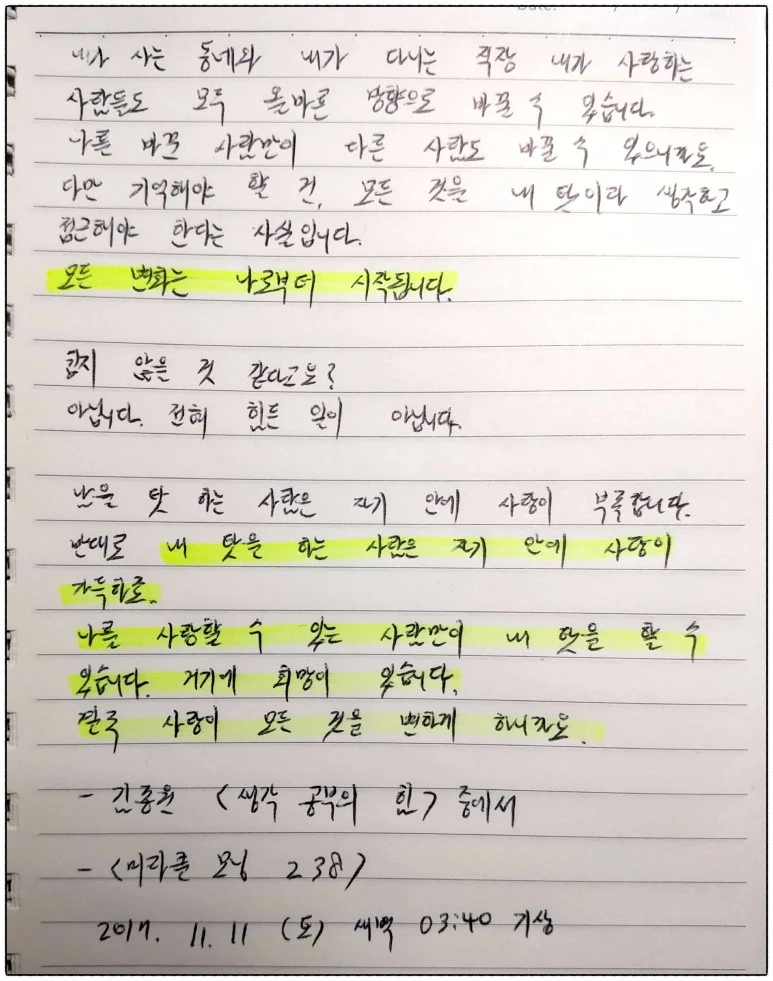 Date:
내가 사는 동네와 내가 다니는 직장 내가 사랑하는
사람들도 모두 올바른 방향으로 바꿀 수 있습니다.
나를 바꾼 사람만이 다른 사람도 바꿀 수 있으니까요.
다만 기억해야 할 건, 모든 것을 내 탓이라 생각하고
접근해야 한다는 사실입니다.
모든 변화는 나로부터 시작됩니다.
쉽지 않을 것 같다고요?
아닙니다. 전혀 힘든 일이 아닙니다.
남을 탓 하는 사람은 자기 안에 사랑이 부족합니다.
반대로 내 탓을 하는 사람은 자기 안에 사랑이
가득하죠.
나를 사랑할 수 있는 사람만이 내 탓을 할 수
있습니다. 거기에 희망이 있습니다.
결국 사랑이 모든 것을 변하게 하니까요.
- 김종원 <생각 공부의 힘> 중에서
- <미라클 모닝 238>
2017. 11. 11 (토) 새벽 03:40 기상